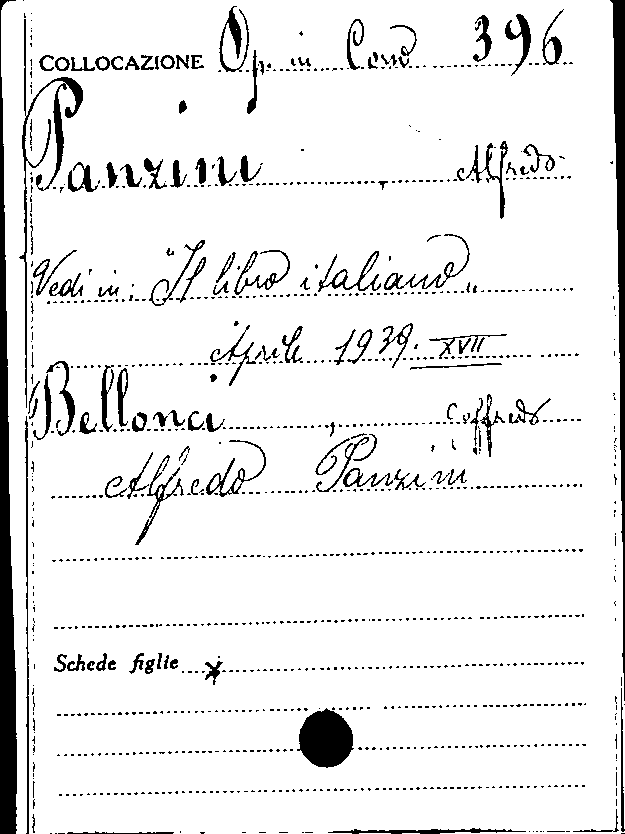 COLLOCAZIONE Op. in Cons 396
Panzini, Alfredo
Vedi in: "Il libro italiano„
Aprile 1939. XVII
Bellonci, Goffredo
Alfredo Panzini
Schede figlie x